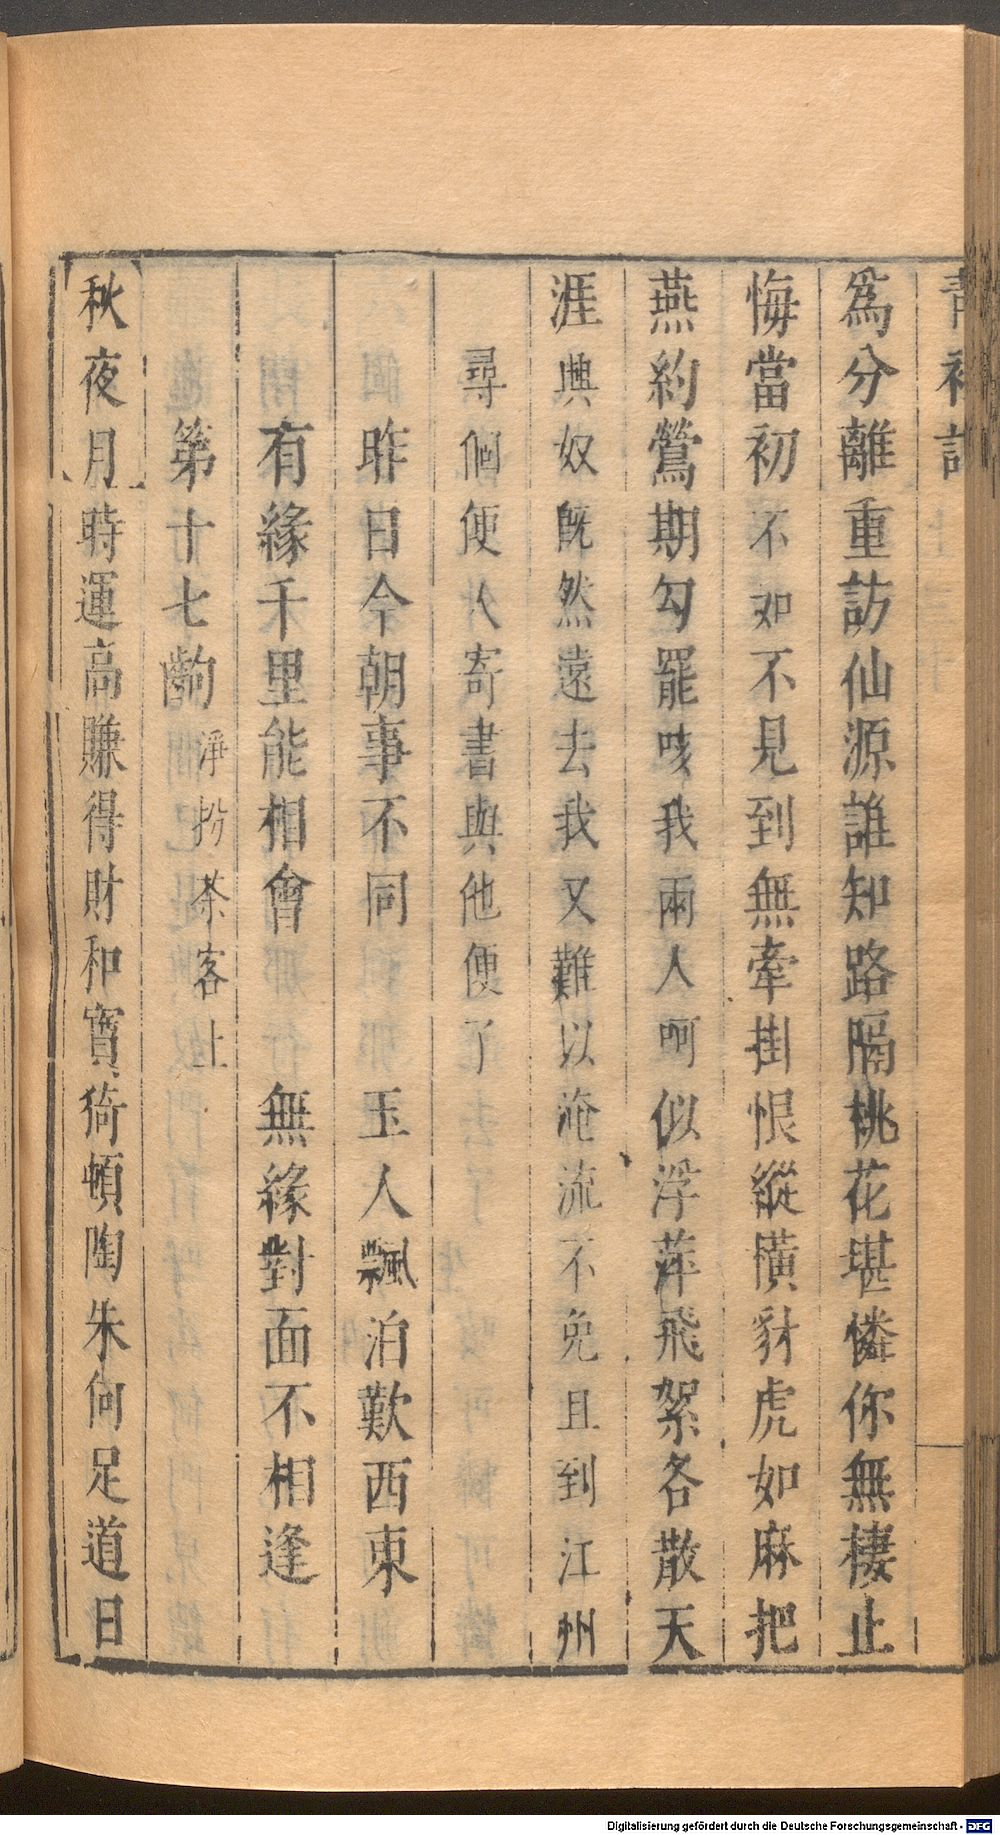 青衫記
為分離重訪仙源誰知路隔桃花堪憐你無棲止
悔當初不如不見到無牽掛恨縱橫豺虎如麻把
燕約鶯期勾罷咳我兩人呵似浮萍飛絮各散天
涯與奴既然遠去我又難以淹流不免且到江州
尋個便人寄書與他便了
昨日今朝事不同　玉人飄泊歎西東
有緣千里能相會　無緣對面不相逢
第十七齣　淨扮茶客上
秋夜月時運高賺得財和寶猗頓陶朱何足道日
Digitalisierung gefördert durch die Deutsche Forschungsgemeinschaft - DFG